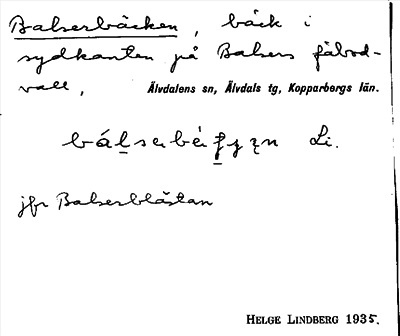 Balserbäcken, bäck i
sydkanten på Balsers fäbod-
vall, Älvdalens sn, Älvdals tg, Kopparbergs län.
Li.
jfr Balserblästan
HELGE LINDBERG 1935.